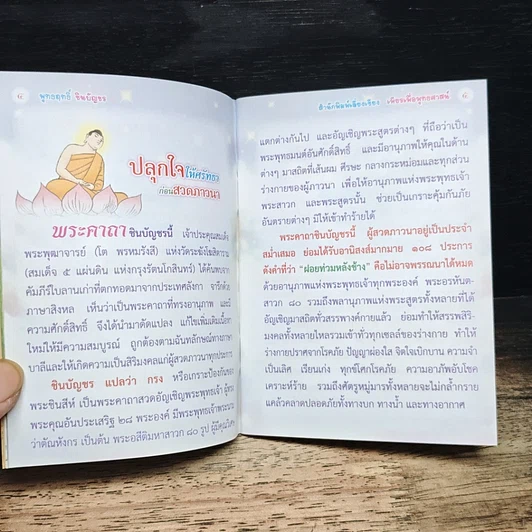 ๔ พุทธฤทธิ์ ชินบัญชร
ปลุกใจให้ศรัทธา
ก่อนสวดภาวนา
พระคาถาชินบัญชรนี้ เจ้าประคุณสมเด็จ
พระพุฒาจารย์ (โต พรหมรังสี) แห่งวัดระฆังโฆสิตาราม
(สมเด็จ ๕ แผ่นดิน แห่งกรุงรัตนโกสินทร์) ได้ค้นพบจาก
คัมภีร์ใบลานเก่าที่ตกทอดมาจากประเทศลังกา จารึกด้วย
ภาษาสิงหล เห็นว่าเป็นพระคาถาที่ทรงอานุภาพ และ
ความศักดิ์สิทธิ์ จึงได้นำมาดัดแปลง แก้ไขเพิ่มเติมเนื้อหา
ใหม่ให้มีความสมบูรณ์ ถูกต้องตามฉันทลักษณ์ทางภาษา
บาลีและให้เกิดความเป็นสิริมงคลแก่ผู้สวดภาวนาทุกประการ
ชินบัญชร แปลว่า กรง หรือเกราะป้องกันของ
พระชินสีห์ เป็นพระคาถาสวดอัญเชิญพระพุทธเจ้า ผู้ทรง
พระคุณอันประเสริฐ ๒๘ พระองค์ มีพระพุทธเจ้าพระนาม
ว่าตัณหังกร เป็นต้น พระอสีติมหาสาวก ๘๐ รูป ผู้มีคุณวิเศษ
สำนักพิมพ์เลี่ยงเชียง เพียรเพื่อพุทธศาสน์ ๕
แตกต่างกันไป และอัญเชิญพระสูตรต่างๆ ที่ถือว่าเป็น
พระพุทธมนต์อันศักดิ์สิทธิ์ และมีอานุภาพให้คุณในด้าน
ต่างๆ มาสถิตที่เส้นผม ศีรษะ กลางกระหม่อมและทุกส่วน
ร่างกายของผู้ภาวนา เพื่อให้อานุภาพแห่งพระพุทธเจ้า
พระสาวก และพระสูตรนั้น ช่วยเป็นเกราะคุ้มกันภัย
อันตรายต่างๆ มิให้เข้าทำร้ายได้
พระคาถาชินบัญชรนี้ ผู้สวดภาวนาอยู่เป็นประจำ
สม่ำเสมอ ย่อมได้รับอานิสงส์มากมาย ๑๐๘ ประการ
ดังคำที่ว่า "ฝอยท่วมหลังช้าง" คือไม่อาจพรรณนาได้หมด
ด้วยอานุภาพแห่งพระพุทธเจ้าทุกพระองค์ พระอรหันต-
สาวก ๘๐ รวมถึงพลานุภาพแห่งพระสูตรทั้งหลายที่ได้
อัญเชิญมาสถิตทั่วสรรพางค์กายแล้ว ย่อมทำให้สรรพสิริ-
มงคลทั้งหลายไหลรวมเข้าทั่วทุกเซลล์ของร่างกาย ทำให้
ร่างกายปราศจากโรคภัย ปัญญาผ่องใส จิตใจเบิกบาน ความจำ
เป็นเลิศ เรียนเก่ง ทุกข์โศกโรคภัย ความอาภัพอับโชค
เคราะห์ร้าย รวมถึงศัตรูหมู่มารทั้งหลายจะไม่กล้ำกราย
แคล้วคลาดปลอดภัยทั้งทางบก ทางน้ำ และทางอากาศ